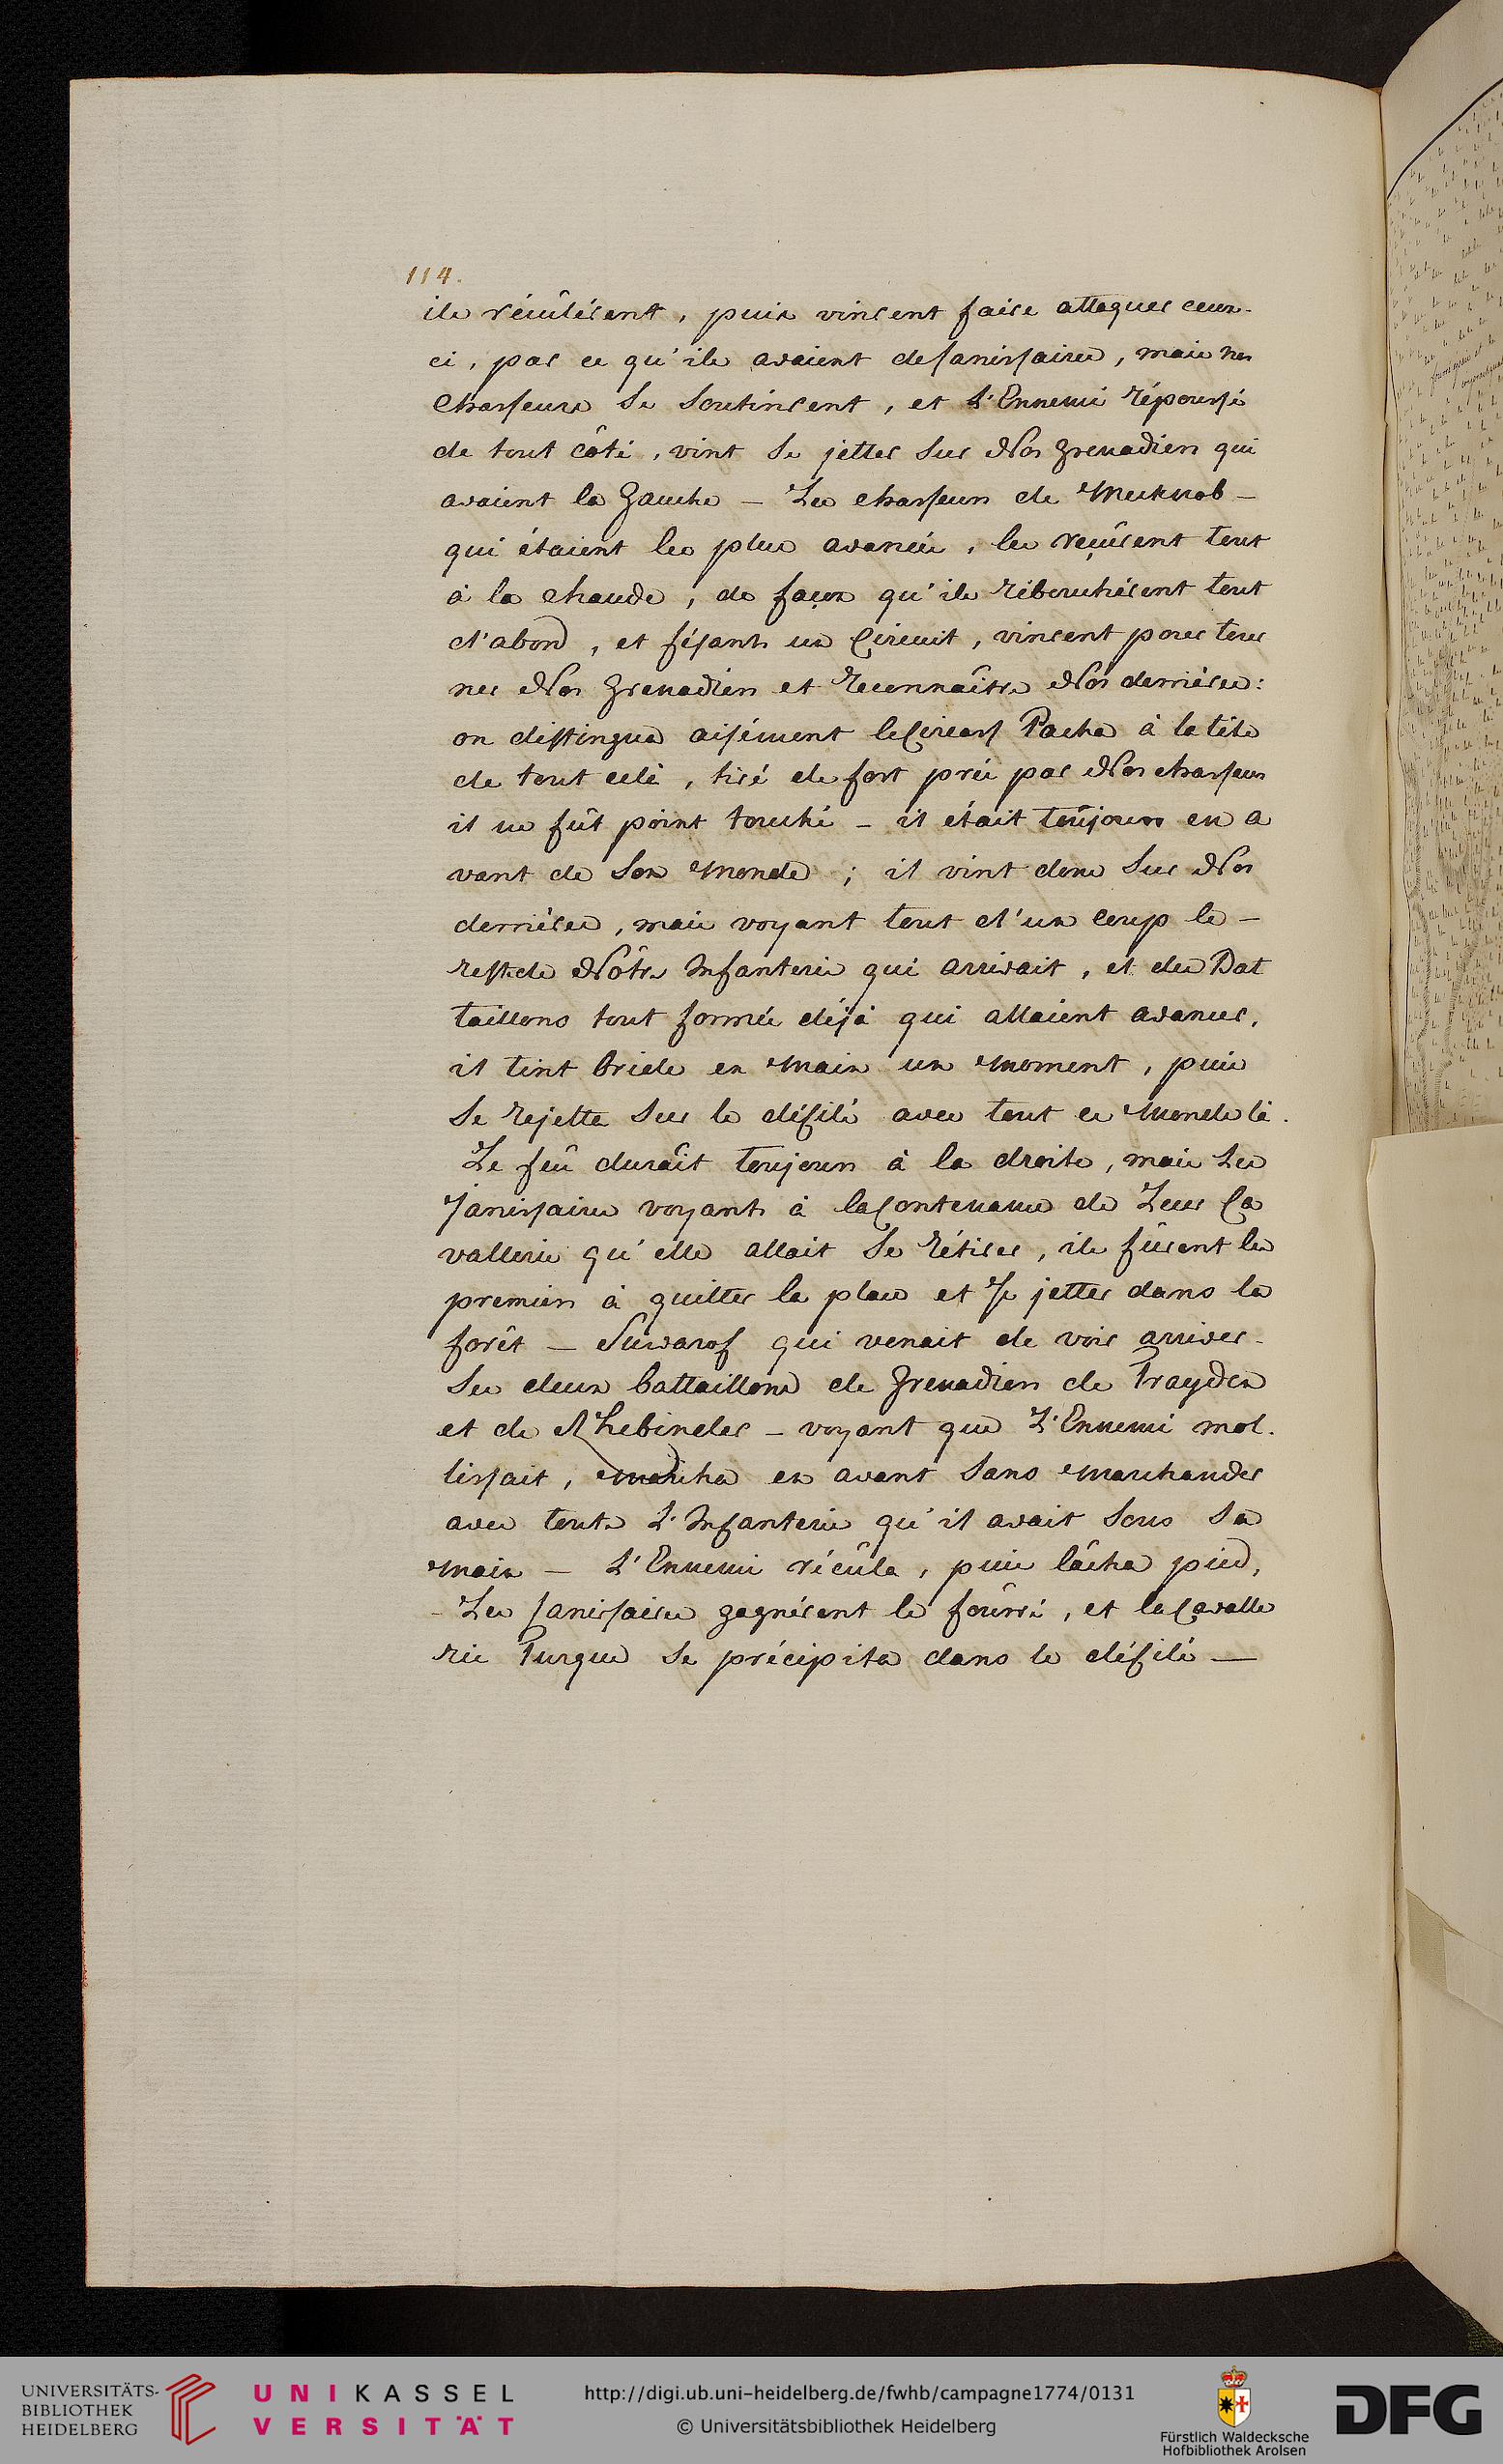 114.
ils réculérent, puis vinrent faire attaquer ceux-
ci, par ce qu'ils avaient de Janissaires, mais nos
Chasseurs Se Soutinrent, et L'Ennemi répoussé
de tout côté, vint Se jetter Sur Nos grenadiers qui
avaient la gauche – Les chasseurs de Meknob –
qui étaient les plus avancés, les reçûrent tout
à la chaude, de façon qu'ils rébouchérent tout
d'abord, et fésants un Circuit, vinrent pour tour
ner Nos grenadiers et Reconnaître Nos derriéres:
on distingua aisément le Circass Pacha à la tête
de tout celà, tiré de fort prés par Nos chasseurs
il ne fût point touché – il était toûjours en a
vant de Son Monde ; il vint donc Sur Nos
derriéres, mais voyant tout d'un coup le –
reste de Nôtre Infanterie qui arrivait, et des Bat
taillons tout formés déjà qui allaient avancer,
il tint bride en Main un Moment, puis
Se rejetta Sur le défilé avec tout ce Monde là.
Le feû durait toujours à la droite, mais Les
Janissaires voyants à la Contenance de Leur Ca
vallerie qu'elle allait Se rétirer, ils fûrent les
premiers à quitter la place et Se jetter dans la
forêt – Suwarof qui venait de voir arriver
Ses deux battaillons de grenadiers de Trayden
et de Rhebinder – voyant que L'Ennemi mol-
lissait, Marcha en avant Sans Marchander
avec toute L'Infanterie qu'il avait Sous Sa
Main – L'Ennemi récûla, puis lâcha pied,
– Les Janissaires gagnérent le foûrré, et la Cavalle
rie Turque Se précipita dans le défilé —
UNIVERSITÄTS-
BIBLIOTHEK
HEIDELBERG
UNIKASSEL
VERSITÄT
http://digi.ub.uni-heidelberg.de/fwhb/campagne1774/0131
© Universitätsbibliothek Heidelberg
Fürstlich Waldecksche
Hofbibliothek Arolsen
DFG